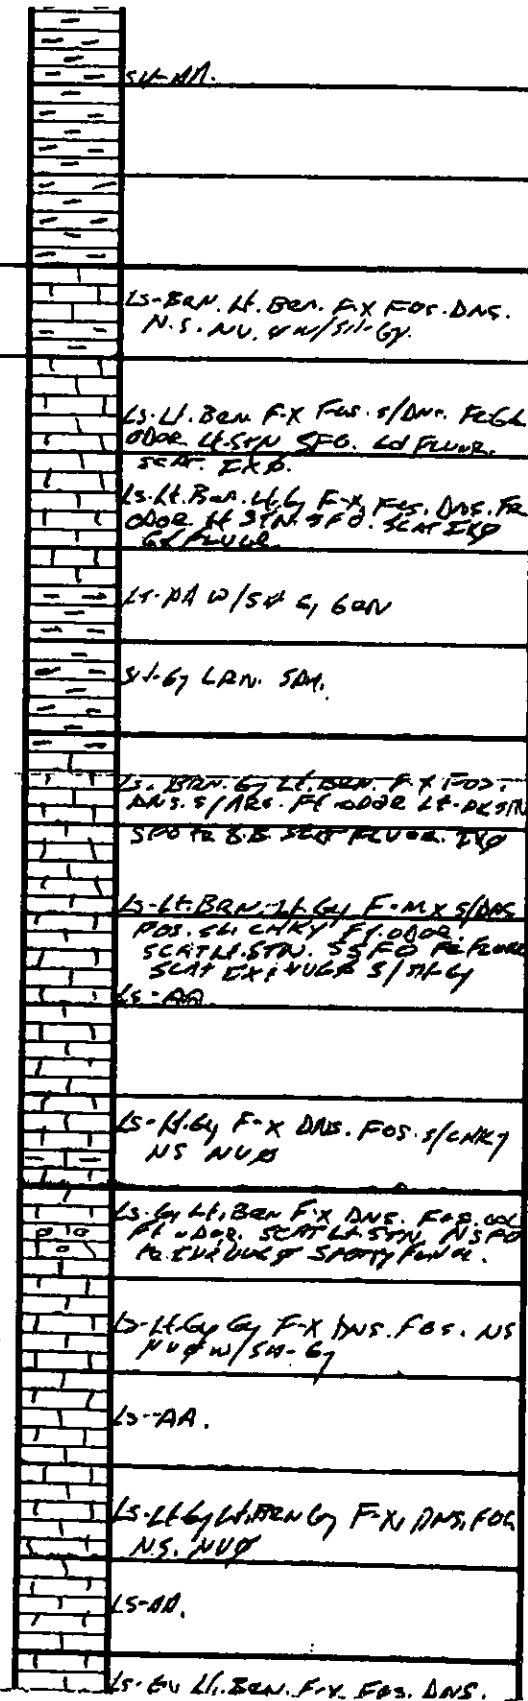 SH-AA.
LS-BRN. Lt. BRN. F-X FOS. DNS.
N.S. NV. Ø w/SH-Gy.
LS-Lt. BRN F-X FOS. S/DNS.
ODOR Lt STN SFO. Gd FLUOR.
SCAT. IXØ.
LS-Lt. BRN. Lt. Gy F-X, FOS. DNS. FR
ODOR. Lt STN. SFO. SCAT IXØ
Gd FLUOR.
LS-AA W/SH G, GRN
SH-Gy GRN.
LS. BRN. Gy Lt. BRN. F-X FOS.
DNS. S/ARG. Ft ODOR Lt-DK STN
SFO TR SCAT FLUOR. IXØ
LS-Lt. BRN. Lt. Gy F-MX S/DNS
FOS. SLI CHKY Ft. ODOR.
SCAT Lt. STN. SSFO FR FLUOR
SCAT IX; VUGØ S/SH-Gy
LS-AA.
LS-Lt. Gy F-X DNS. FOS. S/CHKY
NS NVØ
LS. Gy Lt. BRN F-X DNS. FOS. OOL
Ft ODOR. SCAT Lt STN NSFO
SPOTTY FLUOR.
LS-Lt. Gy Gy F-X DNS. FOS. NS
NVØ W/SH-Gy
LS-AA.
LS-Lt Gy Lt. BRN Gy F-X, DNS. FOS
N.S. NVØ
LS-AA.
LS-Gy Lt. BRN. F-X. FOS. DNS.